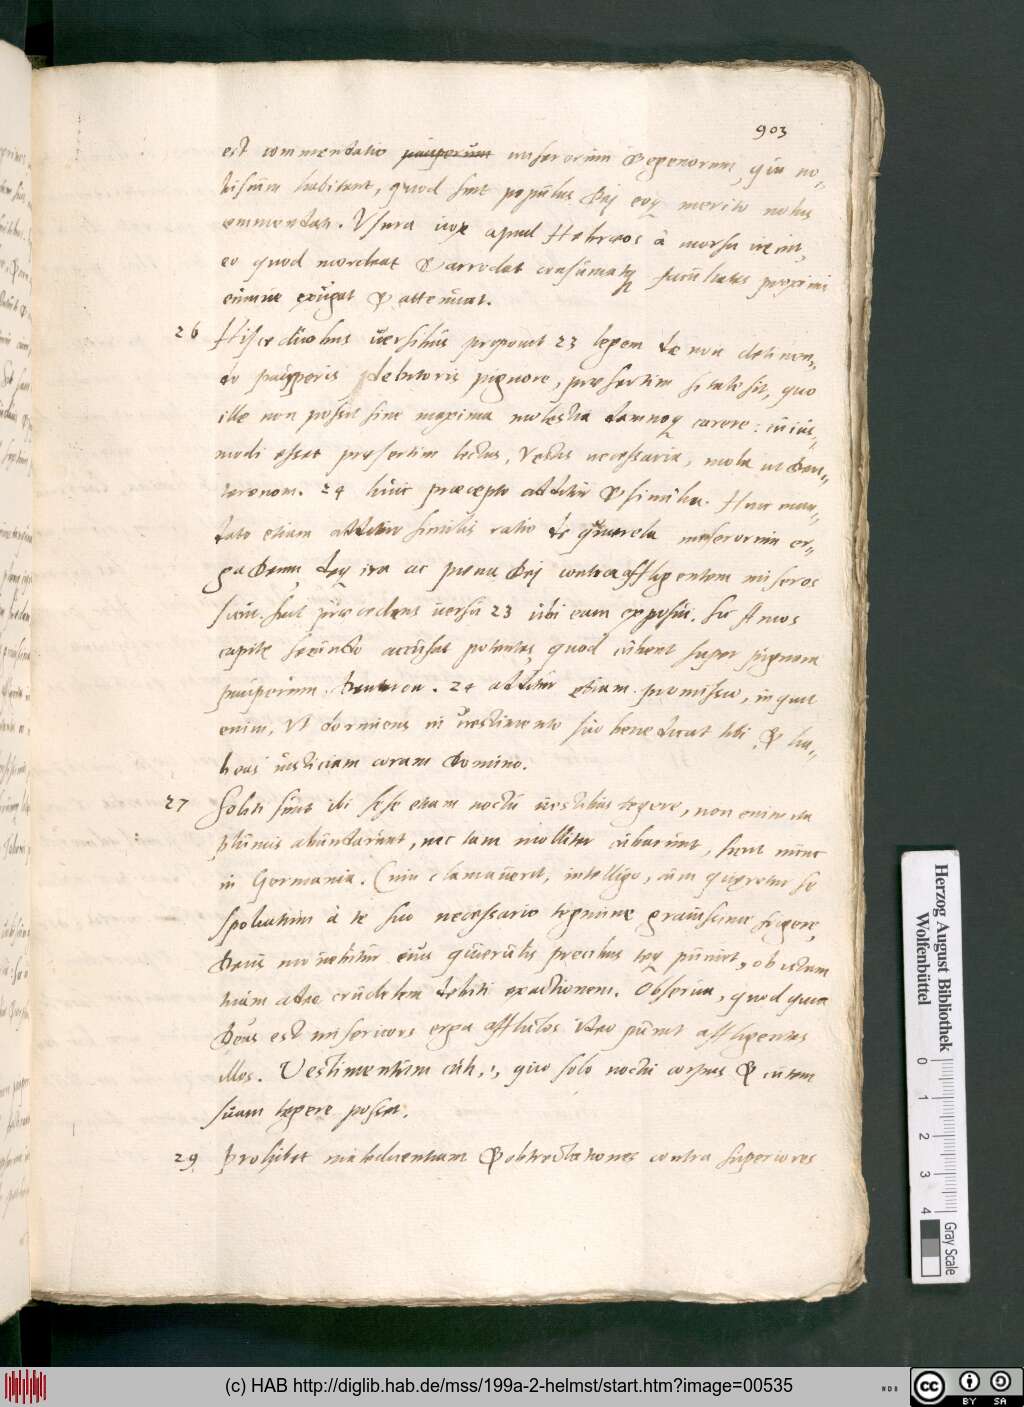 903
est commendatio pauperum miserorum & egenorum, qui no-
biscum habitant, quod sint populus Dei eoq; merito nobis
commendati. Usura vox apud Hebræos à morsu venit,
eo quod mordeat & arrodat consumatq; facultates proximi
eumve exugat & attenuat.
26 Hisce duobus versibus proponit 23 legem de non detinen-
do pauperis debitoris pignore, præsertim si tale sit, quo
ille non possit sine maxima molestia damnoq; carere: cuius-
modi esset præsertim lectus, Vestis necessaria, mola ut Deu-
teronom. 24 huic præcepto additur & similia. Huic man-
dato etiam additur similis ratio de querela miserorum er-
ga Deum, deq; ira ac pœna Dei contra affligentem miseros
sicut fuit præcedens versu 23 ubi eam exposui. Sic Amos
capite secundo accusat potentes, quod cubent super pignora
pauperum. Deuteron. 24 additur etiam promissio, inquit
enim, Ut dormiens in vestimento suo benedicat tibi, & ha-
beas iusticiam coram Domino.
27 Soliti sunt ibi sese etiam noctu vestibus tegere, non enim ita
plumis abundarunt, nec tam molliter cubarunt, sicut nunc
in Germania. Cum clamaverit, intelligo, cum queretur se
spoliatum à te suo necessario tegmine gravissime frigere,
Deus movebitur eius querulis precibus teq; puniet, ob istam
tuam adeo crudelem debiti exactionem. Observa, quod quia
Deus est misericors erga afflictos ideo punit affligentes
illos. Vestimentum cut. i, quo solo noctu corpus & cutem
suam tegere posset.
29 Prohibet maledicentiam & obtrectationes contra superiores
Herzog August Bibliothek
Wolfenbüttel
0 1 2 3 4
Gray Scale
(c) HAB http://diglib.hab.de/mss/199a-2-helmst/start.htm?image=00535
cc BY SA